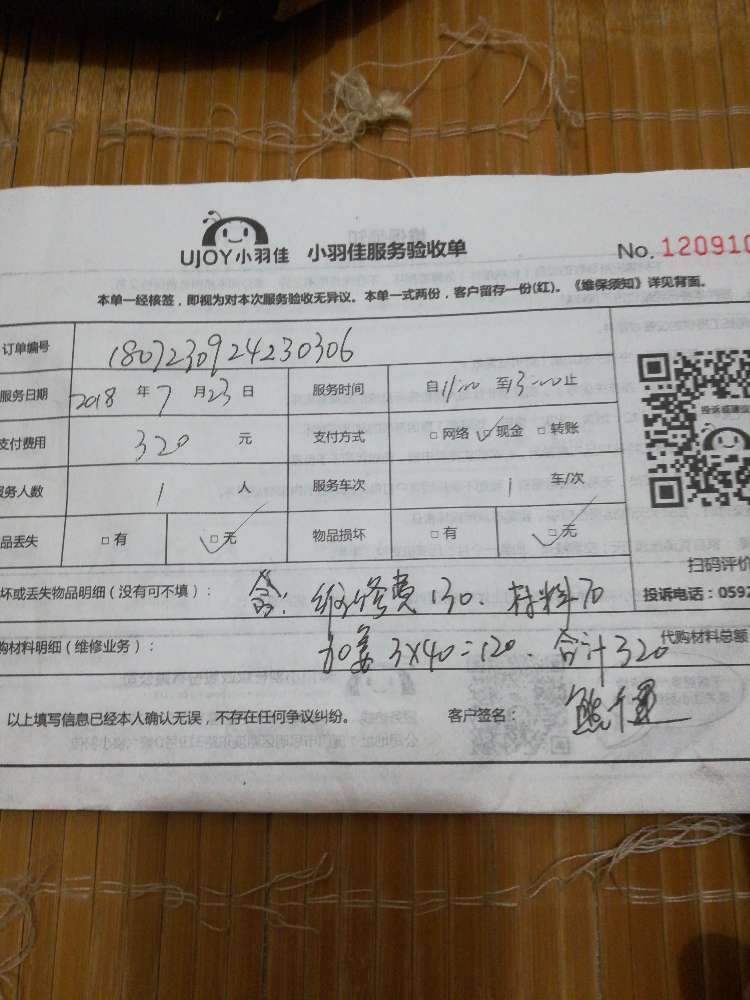 UJOY小羽佳 小羽佳服务验收单 No. 120910
本单一经核签，即视为对本次服务验收无异议。本单一式两份，客户留存一份(红)。《维保须知》详见背面。
订单编号 1807230924230306
服务日期 2018 年 7 月 23 日 服务时间 自 11:00 至 13:00 止
支付费用 320 元 支付方式 □网络 □现金 □转账
服务人数 1 人 服务车次 1 车/次
品丢失 □有 □无 物品损坏 □有 □无
扫码评价
坏或丢失物品明细（没有可不填）： 含：维修费130. 材料70
投诉电话：0592
购材料明细（维修业务）： 3×40=120. 合计320 代购材料总额
以上填写信息已经本人确认无误，不存在任何争议纠纷。 客户签名：